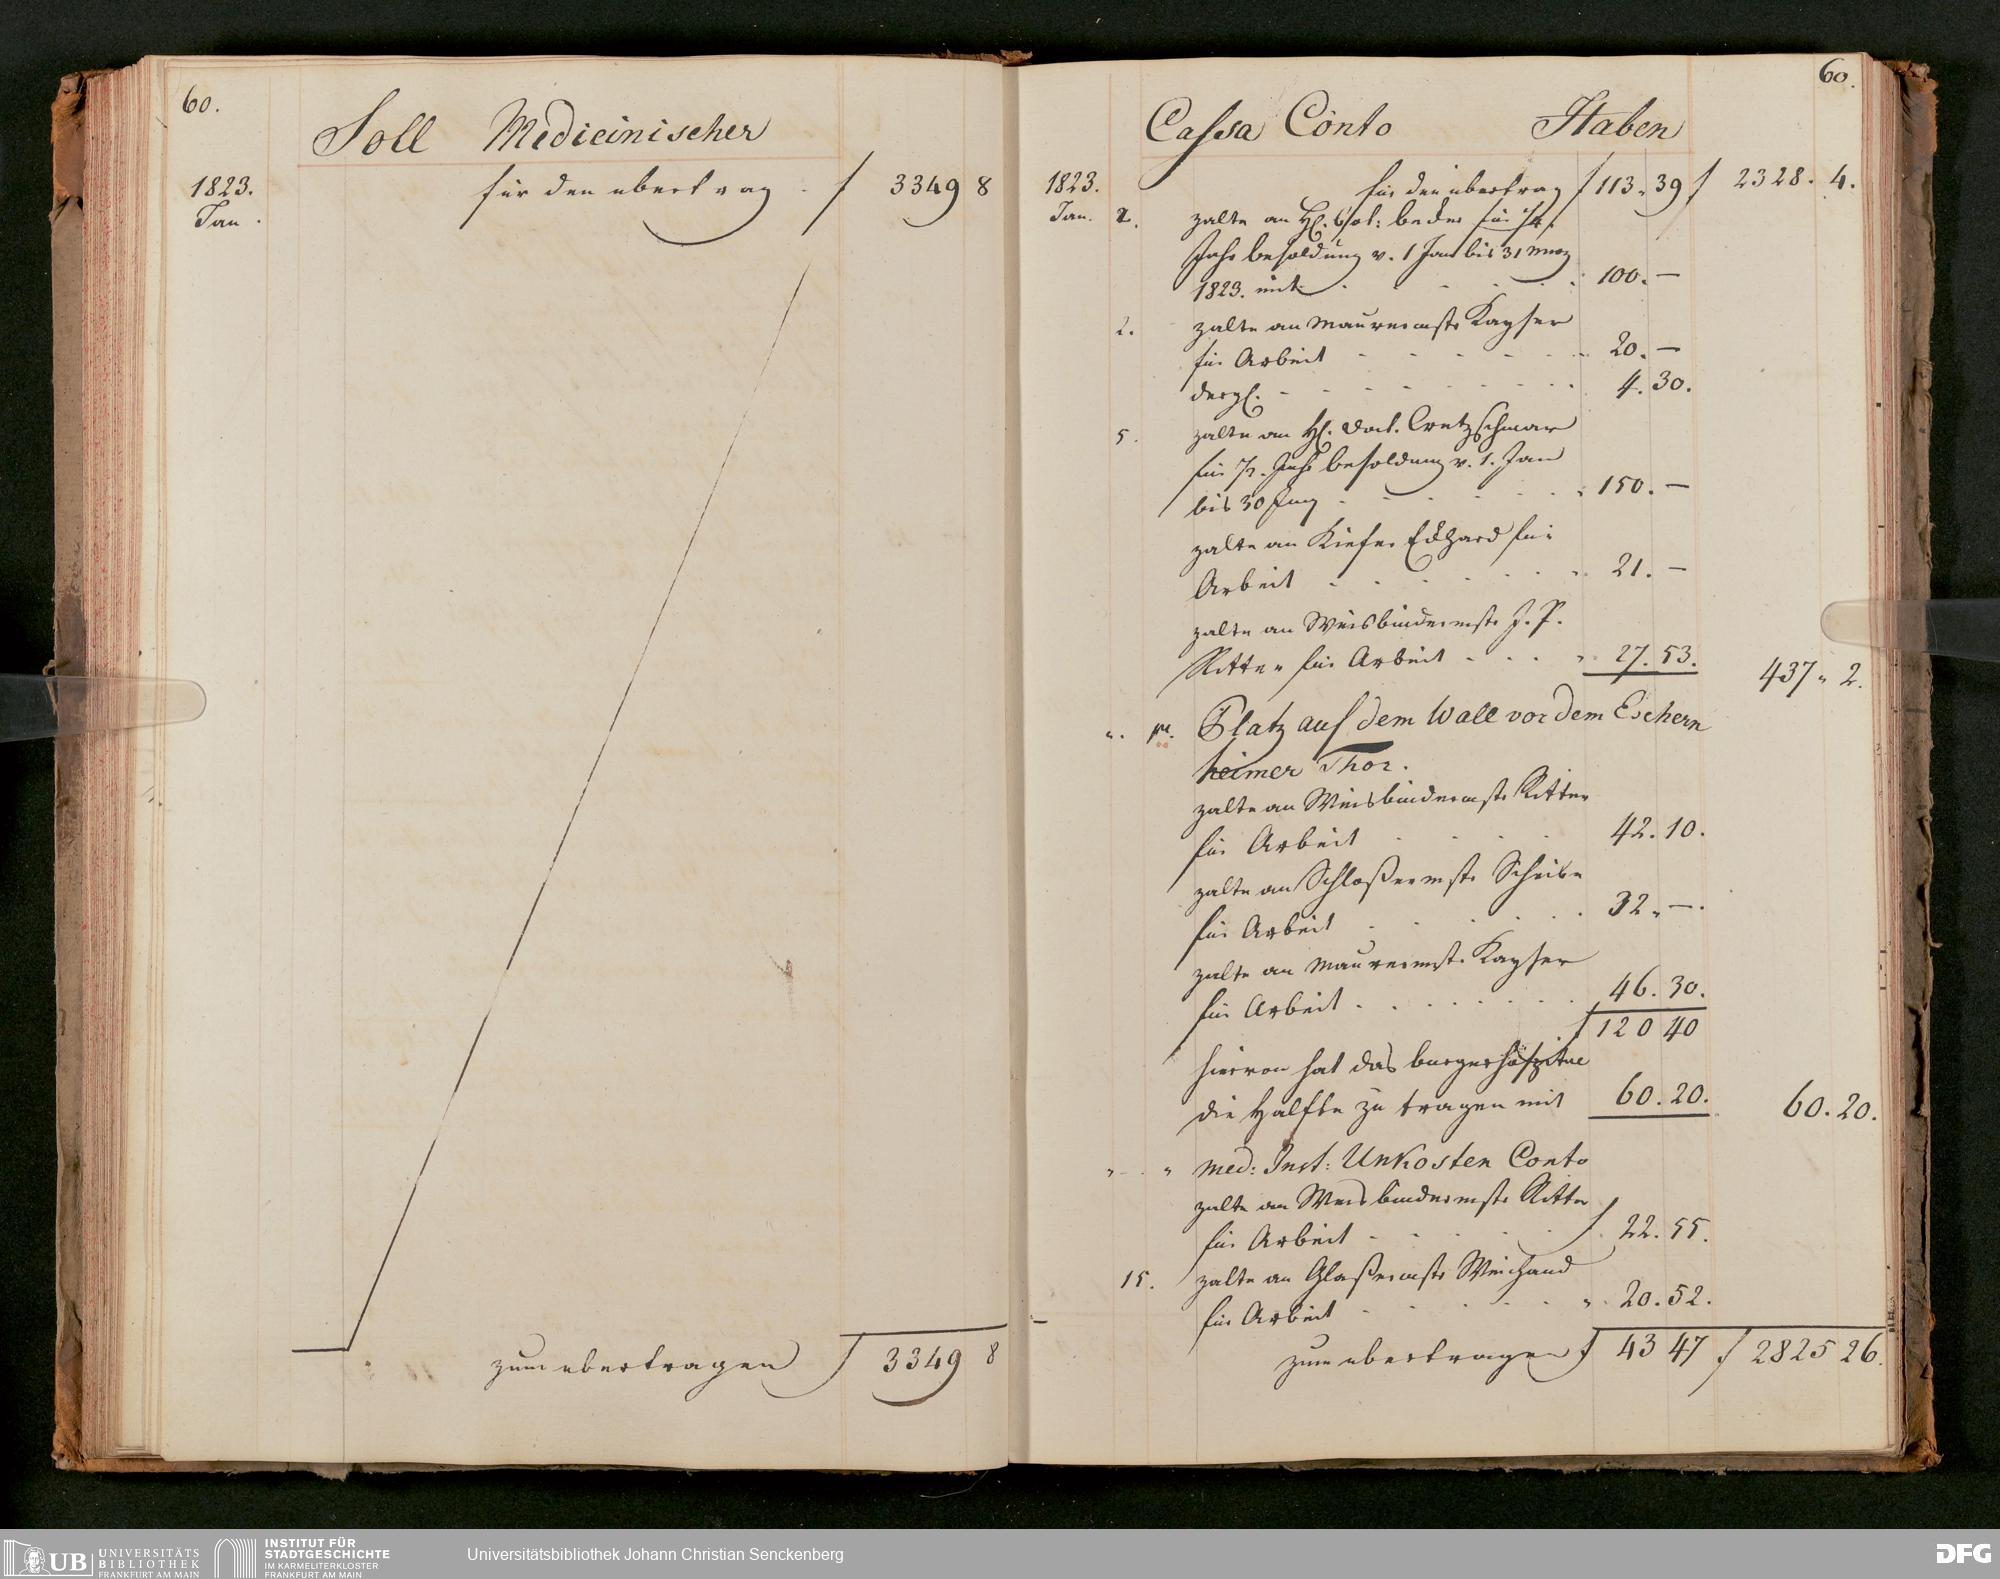 60.
Soll Medicinischer
1823.
Jan.
für den übertrag . f 3349 8
zum übertragen f 3349 8
60.
Cassa Conto Haben
1823. für den übertrag f 113 " 39 f 2328. 4.
Jan. 2. zalte an H. beder für 1/4
Jahr besoldung v. 1 Jan bis 31 Merz
1823. mit 100. —
2. zalte an Maurermstr Kayser
für Arbeit 20. —
dergl. 4. 30.
5. zalte an H. Doct. Cretzschmar
für 1/2. Jahr besoldung v. 1. Jan
bis 30 Juny 150. —
zalte an Kiefer Eckhard für
Arbeit 21. —
zalte an Weisbindermstr J. P.
Ritter für Arbeit 27. 53. 437 " 2.
". pr. Platz auf dem Wall vor dem Eschern
heimer Thor.
zalte an Weisbindermstr Ritter
für Arbeit 42. 10.
zalte an Schloßermstr Scheibe
für Arbeit 32. —.
zalte an Maurermstr Kayser
für Arbeit 46. 30.
f 120 40
hiervon hat das burgerhospital
die Halfte zu tragen mit 60. 20. 60. 20.
" " med: Inst: Unkosten Conto
zalte an Weisbindermstr Ritter
für Arbeit f. 22. 55.
15. zalte an Glaßermstr Weichand
für Arbeit " 20. 52.
zum übertragen f 43 47 f 2825 26.
UB UNIVERSITÄTS
BIBLIOTHEK
FRANKFURT AM MAIN
INSTITUT FÜR
STADTGESCHICHTE
IM KARMELITERKLOSTER
FRANKFURT AM MAIN
Universitätsbibliothek Johann Christian Senckenberg
DFG